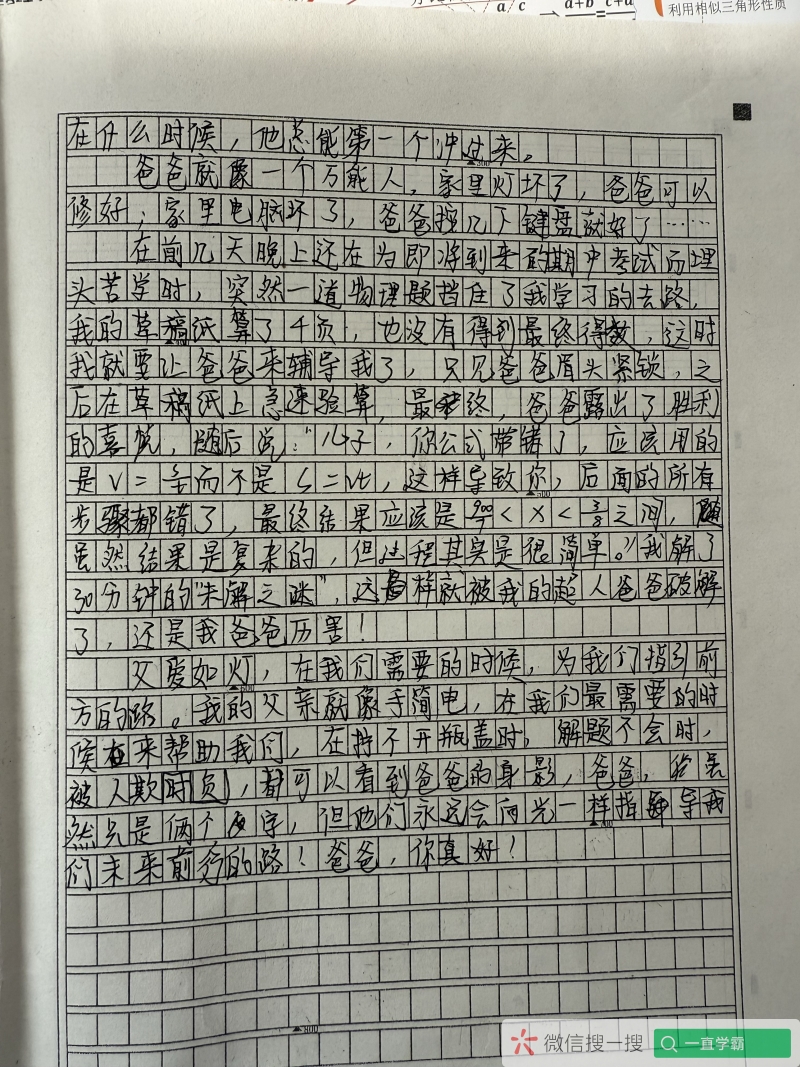 a/c → a+b = c+d
利用相似三角形性质
在什么时候，他总能第一个冲过来。
爸爸就像一个万能人，家里灯坏了，爸爸可以
修好；家里电脑坏了，爸爸按几下键盘就好了……
在前几天晚上还在为即将到来的期中考试而埋
头苦学时，突然一道物理题挡住了我学习的去路，
我的草稿纸算了4页，也没有得到最终得数，这时
我就要让爸爸来辅导我了，只见爸爸眉头紧锁，之
后在草稿纸上急速验算，最终，爸爸露出了胜利
的喜悦，随后说："儿子，你公式带错了，应该用的
是V=而不是S=Vt，这样导致你，后面的所有
步骤都错了，最终结果应该是<X<3/8之间，
虽然结果是复杂的，但过程其实是很简单。"我解了
30分钟的"未解之迷"，这样就被我的超人爸爸破解
了，还是我爸爸历害！
父爱如灯，在我们需要的时候，为我们指引前
方的路。我的父亲就像手筒电，在我们最需要的时
候来帮助我们，在拧不开瓶盖时，解题不会时，
被人欺时负，都可以看到爸爸的身影，爸爸，虽
然只是俩个字，但他们永远会向光一样指导我
们未来前行的路！爸爸，你真好！
▲300
▲500
▲600
▲700
▲800
微信搜一搜
一直学霸